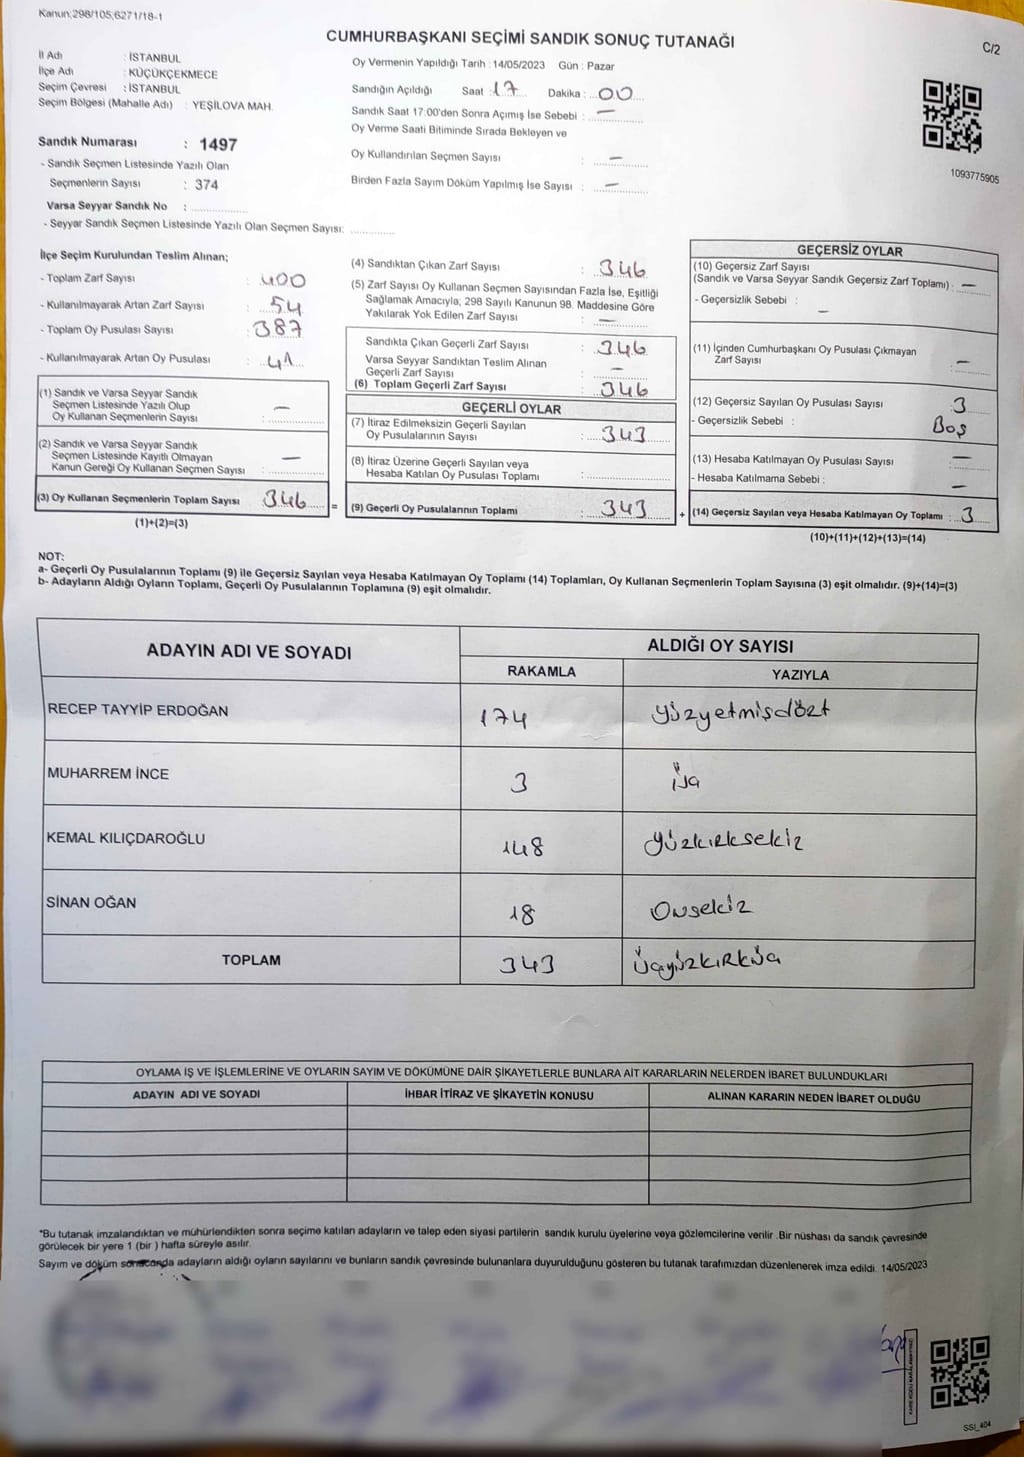 Kanun;298/105,6271/18-1
CUMHURBAŞKANI SEÇİMİ SANDIK SONUÇ TUTANAĞI
C/2
İl Adı : İSTANBUL
İlçe Adı : KÜÇÜKÇEKMECE
Seçim Çevresi : İSTANBUL
Seçim Bölgesi (Mahalle Adı) : YEŞİLOVA MAH.
Sandık Numarası : 1497
- Sandık Seçmen Listesinde Yazılı Olan
Seçmenlerin Sayısı : 374
Varsa Seyyar Sandık No : ....................
- Seyyar Sandık Seçmen Listesinde Yazılı Olan Seçmen Sayısı: ...............
Oy Vermenin Yapıldığı Tarih : 14/05/2023 Gün : Pazar
Sandığın Açıldığı Saat : 17 Dakika : 00
Sandık Saat 17:00'den Sonra Açımış İse Sebebi : —
Oy Verme Saati Bitiminde Sırada Bekleyen ve
Oy Kullandırılan Seçmen Sayısı : —
Birden Fazla Sayım Döküm Yapılmış İse Sayısı : —
1093775905
İlçe Seçim Kurulundan Teslim Alınan;
- Toplam Zarf Sayısı : 400
- Kullanılmayarak Artan Zarf Sayısı : 54
- Toplam Oy Pusulası Sayısı : 387
- Kullanılmayarak Artan Oy Pusulası : 41
(1) Sandık ve Varsa Seyyar Sandık
Seçmen Listesinde Yazılı Olup
Oy Kullanan Seçmenlerin Sayısı : —
(2) Sandık ve Varsa Seyyar Sandık
Seçmen Listesinde Kayıtlı Olmayan
Kanun Gereği Oy Kullanan Seçmen Sayısı : —
(3) Oy Kullanan Seçmenlerin Toplam Sayısı 346 =
(1)+(2)=(3)
(4) Sandıktan Çıkan Zarf Sayısı : 346
(5) Zarf Sayısı Oy Kullanan Seçmen Sayısından Fazla İse, Eşitliği
Sağlamak Amacıyla; 298 Sayılı Kanunun 98. Maddesine Göre
Yakılarak Yok Edilen Zarf Sayısı : —
Sandıkta Çıkan Geçerli Zarf Sayısı : 346
Varsa Seyyar Sandıktan Teslim Alınan
Geçerli Zarf Sayısı : —
(6) Toplam Geçerli Zarf Sayısı : 346
GEÇERLİ OYLAR
(7) İtiraz Edilmeksizin Geçerli Sayılan
Oy Pusulalarının Sayısı : 343
(8) İtiraz Üzerine Geçerli Sayılan veya
Hesaba Katılan Oy Pusulası Toplamı :
(9) Geçerli Oy Pusulalarının Toplamı : 343 +
GEÇERSİZ OYLAR
(10) Geçersiz Zarf Sayısı
(Sandık ve Varsa Seyyar Sandık Geçersiz Zarf Toplamı) : —
- Geçersizlik Sebebi :
—
(11) İçinden Cumhurbaşkanı Oy Pusulası Çıkmayan
Zarf Sayısı : —
(12) Geçersiz Sayılan Oy Pusulası Sayısı : 3
- Geçersizlik Sebebi : Boş
(13) Hesaba Katılmayan Oy Pusulası Sayısı : —
- Hesaba Katılmama Sebebi : —
(14) Geçersiz Sayılan veya Hesaba Katılmayan Oy Toplamı : 3
(10)+(11)+(12)+(13)=(14)
NOT:
a- Geçerli Oy Pusulalarının Toplamı (9) ile Geçersiz Sayılan veya Hesaba Katılmayan Oy Toplamı (14) Toplamları, Oy Kullanan Seçmenlerin Toplam Sayısına (3) eşit olmalıdır. (9)+(14)=(3)
b- Adayların Aldığı Oyların Toplamı, Geçerli Oy Pusulalarının Toplamına (9) eşit olmalıdır.
ADAYIN ADI VE SOYADI ALDIĞI OY SAYISI
RAKAMLA YAZIYLA
RECEP TAYYİP ERDOĞAN 174 yüzyetmişdört
MUHARREM İNCE 3 üç
KEMAL KILIÇDAROĞLU 148 yüzkırksekiz
SİNAN OĞAN 18 Onsekiz
TOPLAM 343 üçyüzkırküç
OYLAMA İŞ VE İŞLEMLERİNE VE OYLARIN SAYIM VE DÖKÜMÜNE DAİR ŞİKAYETLERLE BUNLARA AİT KARARLARIN NELERDEN İBARET BULUNDUKLARI
ADAYIN ADI VE SOYADI İHBAR İTİRAZ VE ŞİKAYETİN KONUSU ALINAN KARARIN NEDEN İBARET OLDUĞU
*Bu tutanak imzalandıktan ve mühürlendikten sonra seçime katılan adayların ve talep eden siyasi partilerin sandık kurulu üyelerine veya gözlemcilerine verilir .Bir nüshası da sandık çevresinde
görülecek bir yere 1 (bir ) hafta süreyle asılır.
Sayım ve döküm sonucunda adayların aldığı oyların sayılarını ve bunların sandık çevresinde bulunanlara duyurulduğunu gösteren bu tutanak tarafımızdan düzenlenerek imza edildi. 14/05/2023
SSI_404